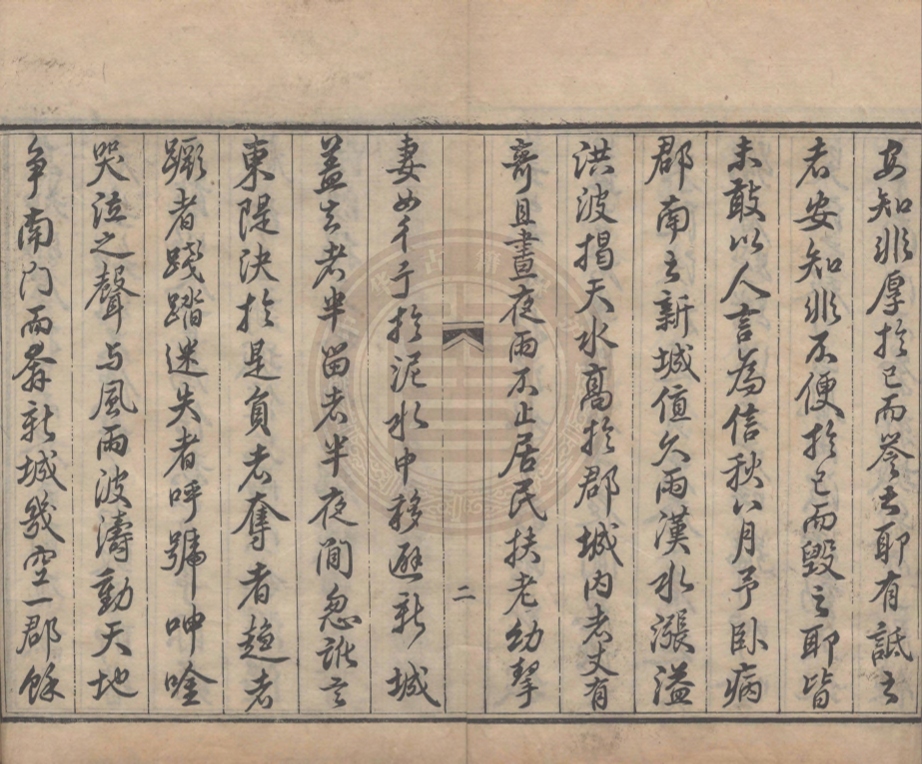 安知非厚於己而誉之耶有詆之
者安知非不便於己而毀之耶皆
未敢以人言為信秋八月予卧病
郡南之新城值久雨漢水漲溢
洪波揭天水高於郡城内者丈有
竒且晝夜雨不止居民扶老幼挈
妻女于于於泥水中移避新城
蓋去者半留者半夜間忽訛言
東隄決於是負者奪者趨者
蹶者踐踏迷失者呼號呻唫
哭泣之聲与風雨波濤動天地
争南门而奔新城幾空一郡餘
二